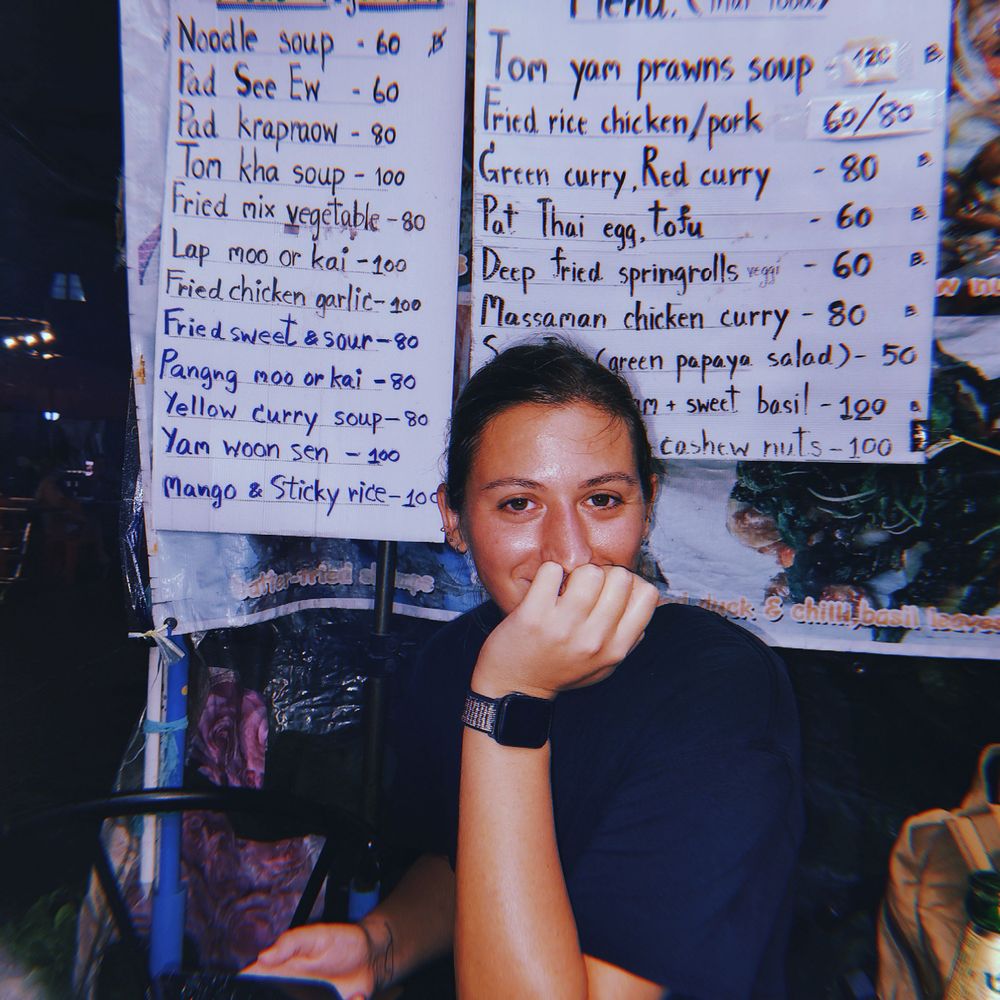 Noodle soup - 60 B
Pad See Ew - 60
Pad krapraow - 80
Tom kha soup - 100
Fried mix vegetable - 80
Lap moo or kai - 100
Fried chicken garlic - 100
Fried sweet & sour - 80
Pangng moo or kai - 80
Yellow curry soup - 80
Yam woon sen - 100
Mango & Sticky rice - 100
Menu. (Thai food)
Tom yam prawns soup - 120 B.
Fried rice chicken/pork 60/80
Green curry, Red curry - 80 B.
Pat Thai egg, tofu - 60 B.
Deep fried springrolls veggi - 60 B.
Massaman chicken curry - 80 B
(green papaya salad) - 50
+ sweet basil - 120 B
cashew nuts - 100
batter-fried shrimps
duck & chilli, basil leaves